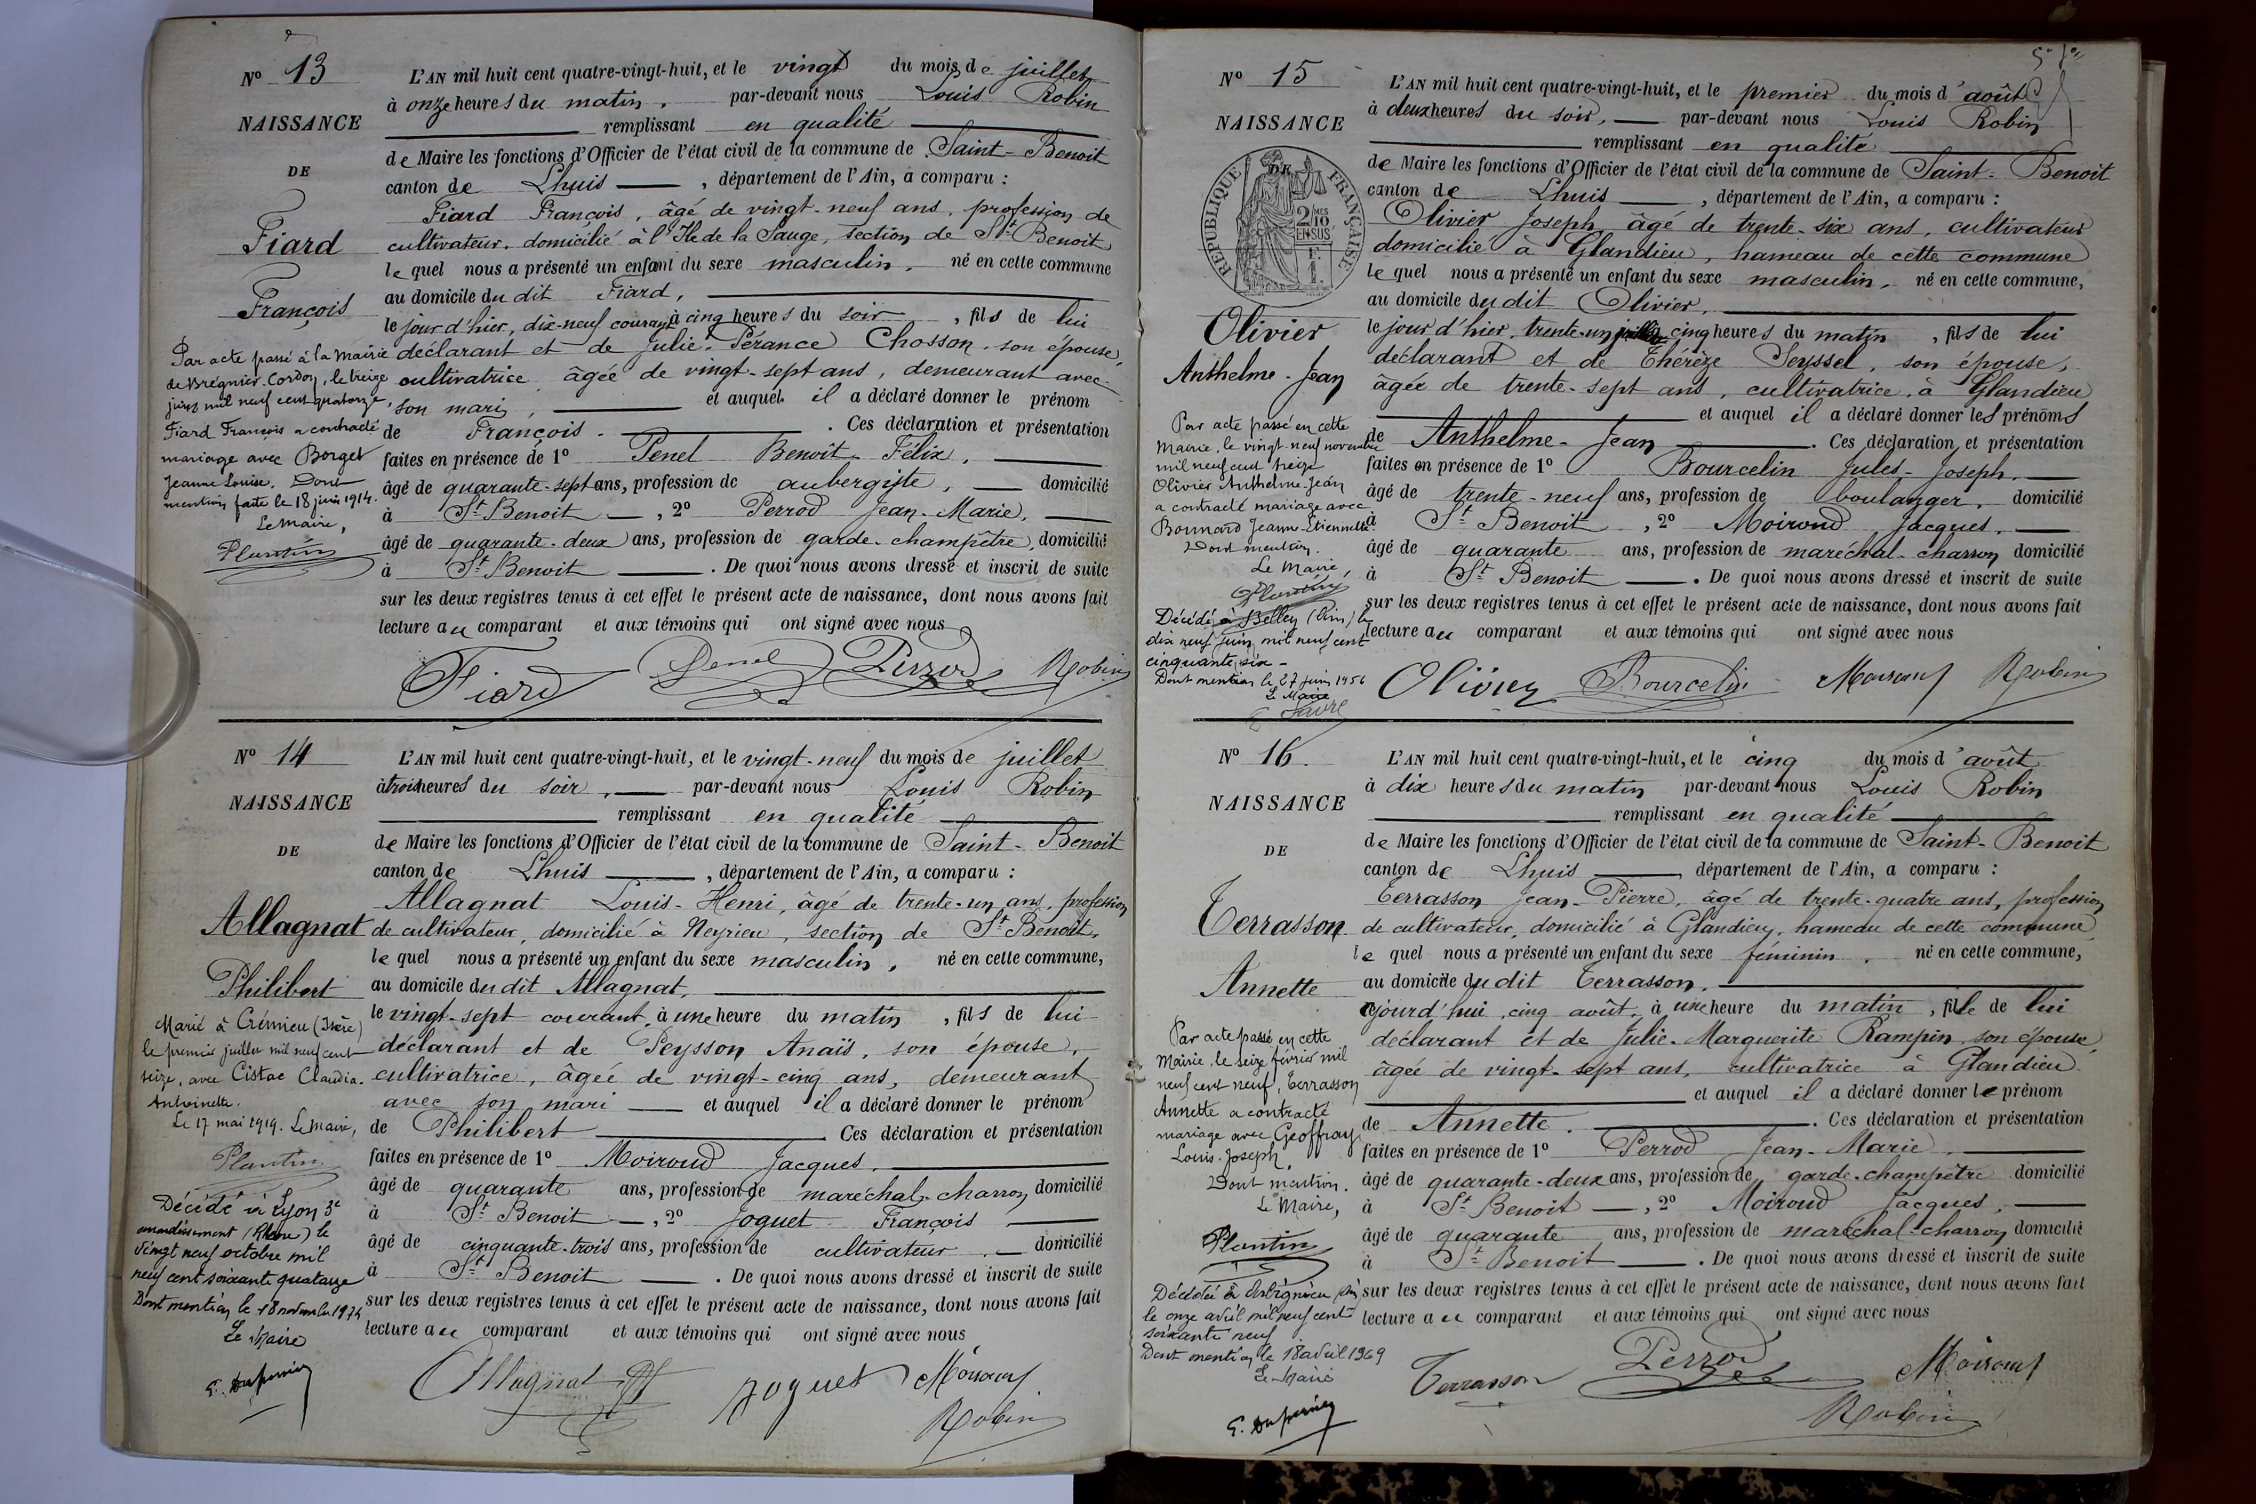 Nº 13
NAISSANCE
DE
Fiard
François
Par acte passé à la Mairie
de Brégnier-Cordon, le treize
juin mil neuf cent quatorze,
Fiard François a contracté
mariage avec Borget
Jeanne Louise. Dont
mention faite le 18 juin 1914.
Le Maire,
Plantin
L'AN mil huit cent quatre-vingt-huit, et le vingt du mois de juillet
à onze heures du matin, par-devant nous Louis Robin
remplissant en qualité
de Maire les fonctions d'Officier de l'état civil de la commune de Saint-Benoit
canton de Lhuis, département de l'Ain, a comparu :
Fiard François, âgé de vingt-neuf ans, profession de
cultivateur, domicilié à l'Ile de la Sauge, section de St Benoit
lequel nous a présenté un enfant du sexe masculin, né en cette commune
au domicile du dit Fiard,
le jour d'hier, dix-neuf courant à cinq heures du soir, fils de lui
déclarant et de Julie-Pérance Chosson, son épouse,
cultivatrice, âgée de vingt-sept ans, demeurant avec
son mari, et auquel il a déclaré donner le prénom
de François. Ces déclaration et présentation
faites en présence de 1º Penel Benoît-Félix,
âgé de quarante-sept ans, profession de aubergiste, domicilié
à St Benoit, 2º Perrod Jean-Marie,
âgé de quarante-deux ans, profession de garde-champêtre, domicilié
à St Benoit. De quoi nous avons dressé et inscrit de suite
sur les deux registres tenus à cet effet le présent acte de naissance, dont nous avons fait
lecture au comparant et aux témoins qui ont signé avec nous
Fiard Penel Perrod Robin
Nº 14
NAISSANCE
DE
Allagnat
Philibert
Marié à Crémieu (Isère)
le premier juillet mil neuf cent
seize, avec Cistac Claudia-
Antoinette.
Le 17 mai 1919. Le Maire,
Plantin
Décédé à Lyon 3e
arrondissement (Rhône) le
Vingt neuf octobre mil
neuf cent soixante quatorze
Dont mention le 18 novembre 1974
Le Maire
L'AN mil huit cent quatre-vingt-huit, et le vingt-neuf du mois de juillet
à trois heures du soir, par-devant nous Louis Robin
remplissant en qualité
de Maire les fonctions d'Officier de l'état civil de la commune de Saint-Benoit
canton de Lhuis, département de l'Ain, a comparu :
Allagnat Louis-Henri, âgé de trente-un ans, profession
de cultivateur, domicilié à Neyrieu, section de St Benoit,
lequel nous a présenté un enfant du sexe masculin, né en cette commune,
au domicile du dit Allagnat,
le vingt-sept courant, à une heure du matin, fils de lui
déclarant et de Peysson Anaïs, son épouse,
cultivatrice, âgée de vingt-cinq ans, demeurant
avec son mari et auquel il a déclaré donner le prénom
de Philibert Ces déclaration et présentation
faites en présence de 1º Moiroud Jacques,
âgé de quarante ans, profession de maréchal-charron domicilié
à St Benoit, 2º Joguet François
âgé de cinquante-trois ans, profession de cultivateur, domicilié
à St Benoit. De quoi nous avons dressé et inscrit de suite
sur les deux registres tenus à cet effet le présent acte de naissance, dont nous avons fait
lecture au comparant et aux témoins qui ont signé avec nous
Allagnat Joguet Moiroud
Robin
Nº 15
NAISSANCE
DE
RÉPUBLIQUE FRANÇAISE
2 MES 10 EN SUS
Olivier
Anthelme-Jean
Par acte passé en cette
Mairie, le vingt neuf novembre
mil neuf cent treize
Olivier Anthelme-Jean
a contracté mariage avec
Bonnard Jeanne-Etiennette
Dont mention.
Le Maire,
Plantin
Décédé à Belley (Ain) le
dix neuf juin mil neuf cent
cinquante six -
Dont mention le 27 juin 1956
Le Maire
Favre
L'AN mil huit cent quatre-vingt-huit, et le premier du mois d'août
à deux heures du soir, par-devant nous Louis Robin
remplissant en qualité
de Maire les fonctions d'Officier de l'état civil de la commune de Saint-Benoit
canton de Lhuis, département de l'Ain, a comparu :
Olivier Joseph âgé de trente-six ans, cultivateur
domicilié à Glandieu, hameau de cette commune
lequel nous a présenté un enfant du sexe masculin, né en cette commune,
au domicile du dit Olivier,
le jour d'hier, trente-un juillet cinq heures du matin, fils de lui
déclarant et de Thérèze Seyssel, son épouse,
âgée de trente-sept ans, cultivatrice, à Glandieu
et auquel il a déclaré donner les prénoms
de Anthelme-Jean. Ces déclaration et présentation
faites en présence de 1º Bourcelin Jules-Joseph,
âgé de trente-neuf ans, profession de boulanger, domicilié
à St Benoit, 2º Moiroud Jacques,
âgé de quarante ans, profession de maréchal-charron domicilié
à St Benoit. De quoi nous avons dressé et inscrit de suite
sur les deux registres tenus à cet effet le présent acte de naissance, dont nous avons fait
lecture au comparant et aux témoins qui ont signé avec nous
Olivier Bourcelin Moiroud Robin
Nº 16.
NAISSANCE
DE
Terrasson
Annette
Par acte passé en cette
Mairie, le seize février mil
neuf cent neuf, Terrasson
Annette a contracté
mariage avec Geoffray
Louis-Joseph.
Dont mention.
Le Maire,
Plantin
Décédée à Arbignieu Ain
le onze avril mil neuf cent
soixante neuf
Dont mention le 18 avril 1969
Le Maire
L'AN mil huit cent quatre-vingt-huit, et le cinq du mois d'août
à dix heures du matin par-devant nous Louis Robin
remplissant en qualité
de Maire les fonctions d'Officier de l'état civil de la commune de Saint-Benoit
canton de Lhuis, département de l'Ain, a comparu :
Terrasson Jean-Pierre, âgé de trente-quatre ans, profession
de cultivateur, domicilié à Glandieu, hameau de cette commune
lequel nous a présenté un enfant du sexe féminin, né en cette commune,
au domicile du dit Terrasson,
cejourd'hui, cinq août, à une heure du matin, fille de lui
déclarant et de Julie-Marguerite Rampin, son épouse
âgée de vingt-sept ans, cultivatrice à Glandieu
et auquel il a déclaré donner le prénom
de Annette. Ces déclaration et présentation
faites en présence de 1º Perrod Jean-Marie,
âgé de quarante-deux ans, profession de garde-champêtre domicilié
à St Benoit, 2º Moiroud Jacques,
âgé de quarante ans, profession de maréchal-charron domicilié
à St Benoit. De quoi nous avons dressé et inscrit de suite
sur les deux registres tenus à cet effet le présent acte de naissance, dont nous avons fait
lecture au comparant et aux témoins qui ont signé avec nous
Terrasson Perrod Moiroud
Robin